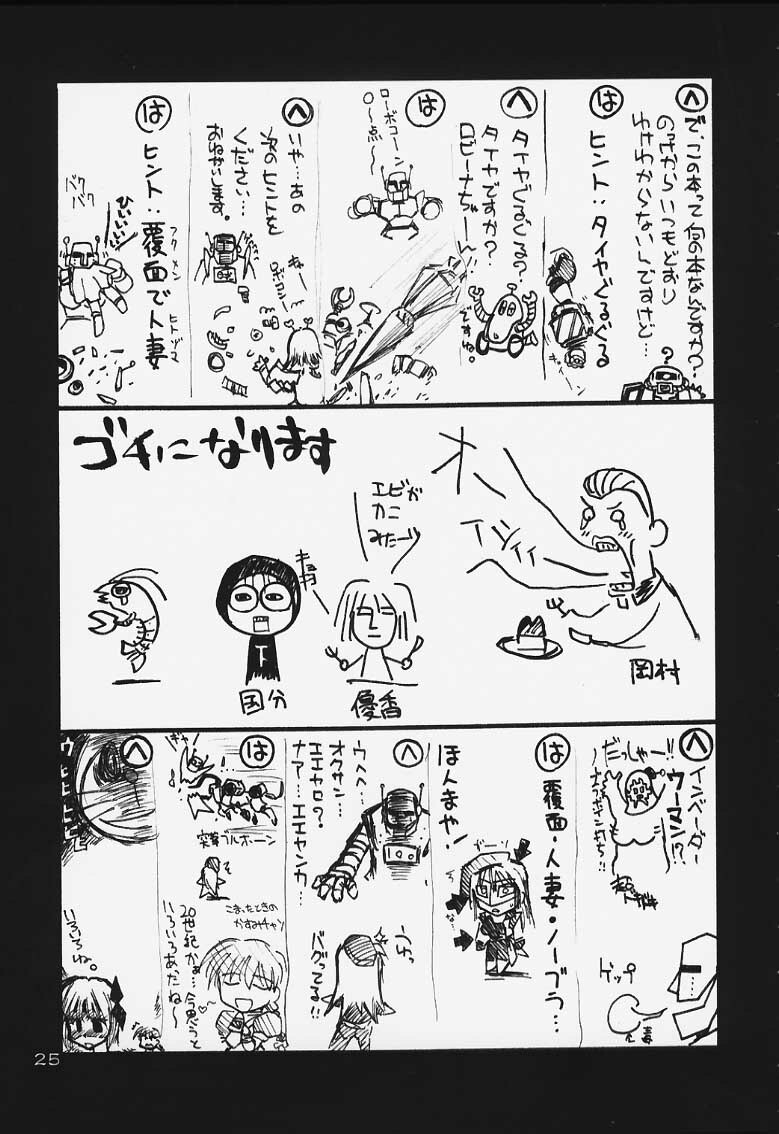 へ
で、この本って何の本なんですか?
のっけからいつもどおり
わけわからないんですけど…
?
は
ヒント:タイヤぐるぐる
へ
タイヤぐるぐる?
タイヤですか?
ロビーナちゃーん
ですね。
は
ローボコーン
0〜点〜
へ
いや…あの
次のヒントを
ください…
おねがいします。
きゃー
ロボコンー
は
ヒント:覆面で人妻
フクメン
ヒトヅマ
ひいいいい!
バク
バク
ゴチになります
オーイシイイ
岡村
エビが
カニ
みたーい
優香
キョロ
下
国分
へ
インベーダー
ウーマン!?
だっしゃー!!
ゲップ
は
覆面・人妻・ノーブラ…
ほんまや!
ゴーー
へ
ウヘヘ…
オクサン…
エエヤロ?
ナァ…エエヤンカ…
うわっ
バグってる!!
は
ギャー
突撃ブルホーン
そ
こまったときの
かすみチャン
20世紀かぁ…今思うと
いろいろあったね〜
へ
いろいろね。
25